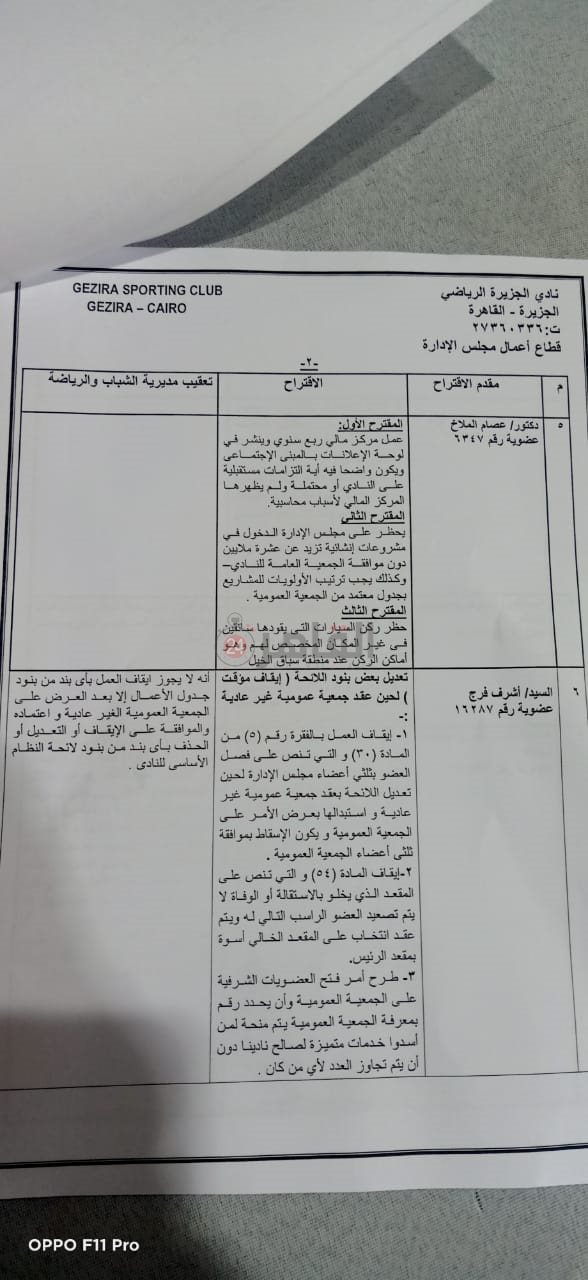 GEZIRA SPORTING CLUB
GEZIRA – CAIRO
نادي الجزيرة الرياضي
الجزيرة - القاهرة
ت:٢٧٣٦٠٣٣٦
قطاع أعمال مجلس الإدارة
-٢-
م
مقدم الاقتراح
الاقتراح
تعقيب مديرية الشباب والرياضة
٥
دكتور/ عصام الملاخ
عضوية رقم ٦٣٤٧
المقترح الأول:
عمل مركز مالي ربع سنوي وينشر في
لوحة الإعلانات بالمبنى الإجتماعى
ويكون واضحا فيه أية التزامات مستقبلية
على النادي أو محتملة ولم يظهرها
المركز المالي لأسباب محاسبية.
المقترح الثالي
يحظر على مجلس الإدارة الدخول في
مشروعات إنشائية تزيد عن عشرة ملايين
دون موافقة الجمعية العامة للنادي–
وكذلك يجب ترتيب الأولويات للمشاريع
بجدول معتمد من الجمعية العمومية .
المقترح الثالث
حظر ركن السيارات التى يقودها سائقين
فى غير المكان المخصص لهم وهو
أماكن الركن عند منطقة سباق الخيل
القاهرة 24
٦
السيد/ أشرف فرج
عضوية رقم ١٦٢٨٧
تعديل بعض بنود اللائحة ( إيقاف مؤقت
لحين عقد جمعية عمومية غير عادية )
:-
١- إيقاف العمل بالفقرة رقم (٥) من
المادة (٣٠) و التي تنص على فصل
العضو بثلثي أعضاء مجلس الإدارة لحين
تعديل اللائحة بعقد جمعية عمومية غير
عادية و استبدالها بعرض الأمر على
الجمعية العمومية و يكون الإسقاط بموافقة
ثلثى أعضاء الجمعية العمومية .
٢-إيقاف المادة (٥٤) و التي تنص على
المقعد الذي يخلو بالاستقالة أو الوفاة لا
يتم تصعيد العضو الراسب التالي له ويتم
عقد انتخاب على المقعد الخالي أسوة
بمقعد الرئيس.
٣- طرح أمر فتح العضويات الشرفية
على الجمعية العمومية وأن يحدد رقم
بمعرفة الجمعية العمومية يتم منحة لمن
أسدوا خدمات متميزة لصالح نادينا دون
أن يتم تجاوز العدد لأي من كان .
أنه لا يجوز ايقاف العمل بأى بند من بنود
جدول الأعمال إلا بعد العرض على
الجمعية العمومية الغير عادية و اعتماده
والموافقة على الإيقاف أو التعديل أو
الحذف بأى بند من بنود لائحة النظام
الأساسى للنادى .
OPPO F11 Pro